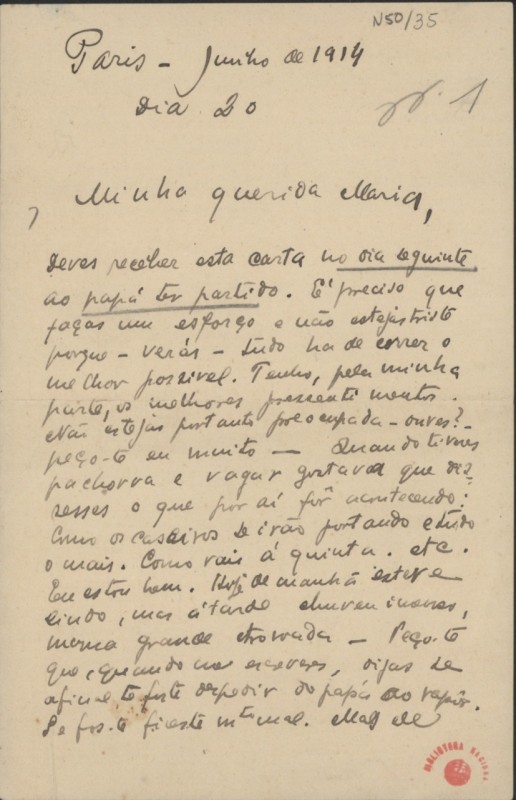 N50/35
Paris - Junho de 1914
Dia 20
1
Minha querida Maria,
Deves receber esta carta no dia seguinte
ao papá ter partido. É preciso que
faças um esforço e não estejas triste
porque - verás - tudo ha de correr o
melhor possivel. Tenho, pela minha
parte, os melhores pressentimentos.
Não estejas portanto preocupada - ouves? -
peço-te eu muito — Quando tiveres
pachorra e vagar gostava que dis-
sesses o que por aí fôr acontecendo:
Como os caseiros se irão portando e tudo
o mais. Como vais á quinta. etc.
Eu estou bem. Hoje de manhã esteve
lindo, mas á tarde choveu imenso,
numa grande trovoada — Peço-te
que, quando me escreveres, digas se
afinal te foste despedir do papá ao vapôr.
Se fos-te fizeste mto mal. Mas de
BIBLIOTECA NACIONAL